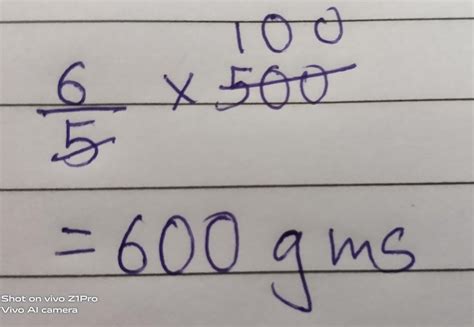 100
6/5 × 500
= 600 gms
Shot on vivo Z1Pro
Vivo AI camera